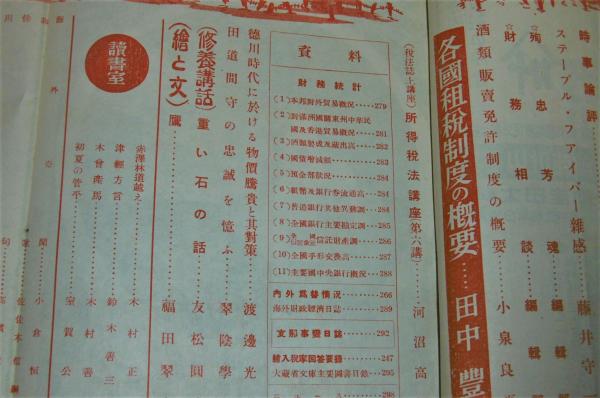 時事論評
ステープル・フアイバー雜感……藤井守
☆殉忠芳魂……編輯
☆財務相談……編輯
酒類販賣免許制度の概要……小泉良
各國租税制度の概要……田中豐
(税法誌上講座)所得税法講座(第六講)……河沼高
資料
財務統計
(1)本邦對外貿易概況……279
(2)對滿洲國關東州中華民
國及香港貿易概況……281
(3)酒類製成及藏出高……282
(4)國債增減額……283
(5)預金部狀況……284
(6)紙幣及銀行券流通高……284
(7)普通銀行其他異動調……284
(8)全國銀行主要勘定調……285
(9)信託財產調……286
(10)全國手形交換高……287
(11)主要國中央銀行概況……288
內外爲替情況……266
海外財政經濟日誌……289
支那事變日誌……292
輸入税率囘答要錄……247
大藏省文庫主要圖書目錄……295
德川時代に於ける物價騰貴と其對策……渡邊光
田道間守の忠誠を憶ふ……翠陰學
(修養講話)重い石の話……友松圓
(繪と文)鷹……福田翠
讀書室
赤澤林道越え……木村正
津輕方言……鈴木善三
木曾產馬……木村善
初夏の菅平……室賀公
小倉恒